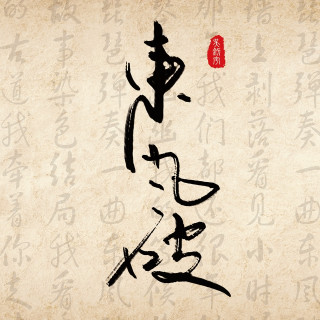 東風破
琵琶弹奏一曲东风
墙上剥落看见小时
我们都还很年
琵琶弹奏一曲东风
故事染色结局我看
的古道我牵着你走